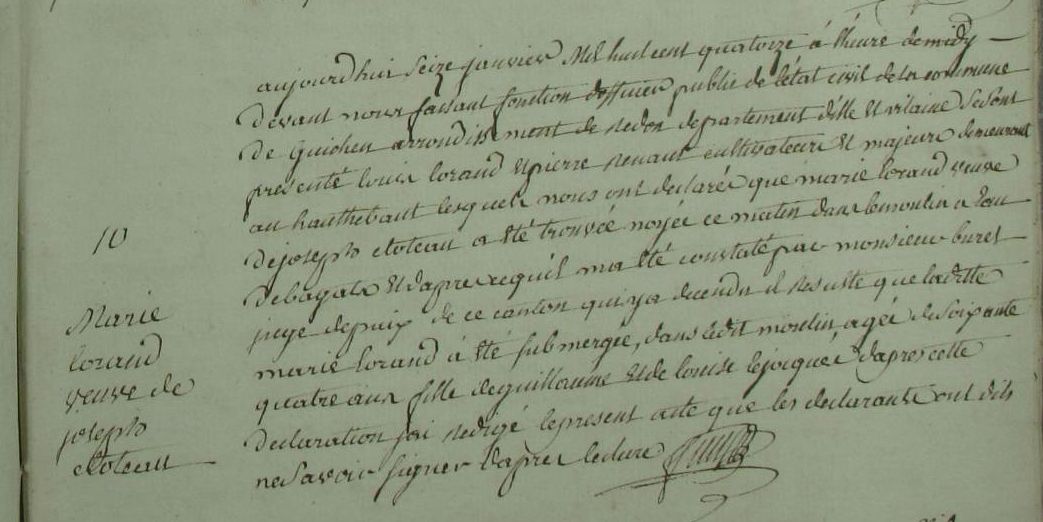 aujourd'hui seize janvier Mil huit cent quatorze à l'heure de midy
devant nous faisant fonction d'officier public de l'état civil de la commune
de guichen arrondissement de redon departement d'ille et vilaine se sont
presenté louis lorand et pierre renaut cultivateurs et majeurs demeurant
au hautbebaut lesquels nous ont declarés que marie lorand veuve
de joseph cloteau a été trouvée noyée ce matin dans le moulin a eau
de bagatz et d'apres ce qu'il m'a été constaté par monsieur buret
juge de paix de ce canton qui y a decendu il resulte que laditte
marie lorand à été submergée, dans ledit moulin agée de soixante
quatre ans fille de guillaume et de louise d'apres cette
declaration j'ai redigé le present acte que les declarants ont dit
ne savoir signer d'apres lecture
10
Marie
lorand
veuve de
joseph
cloteau